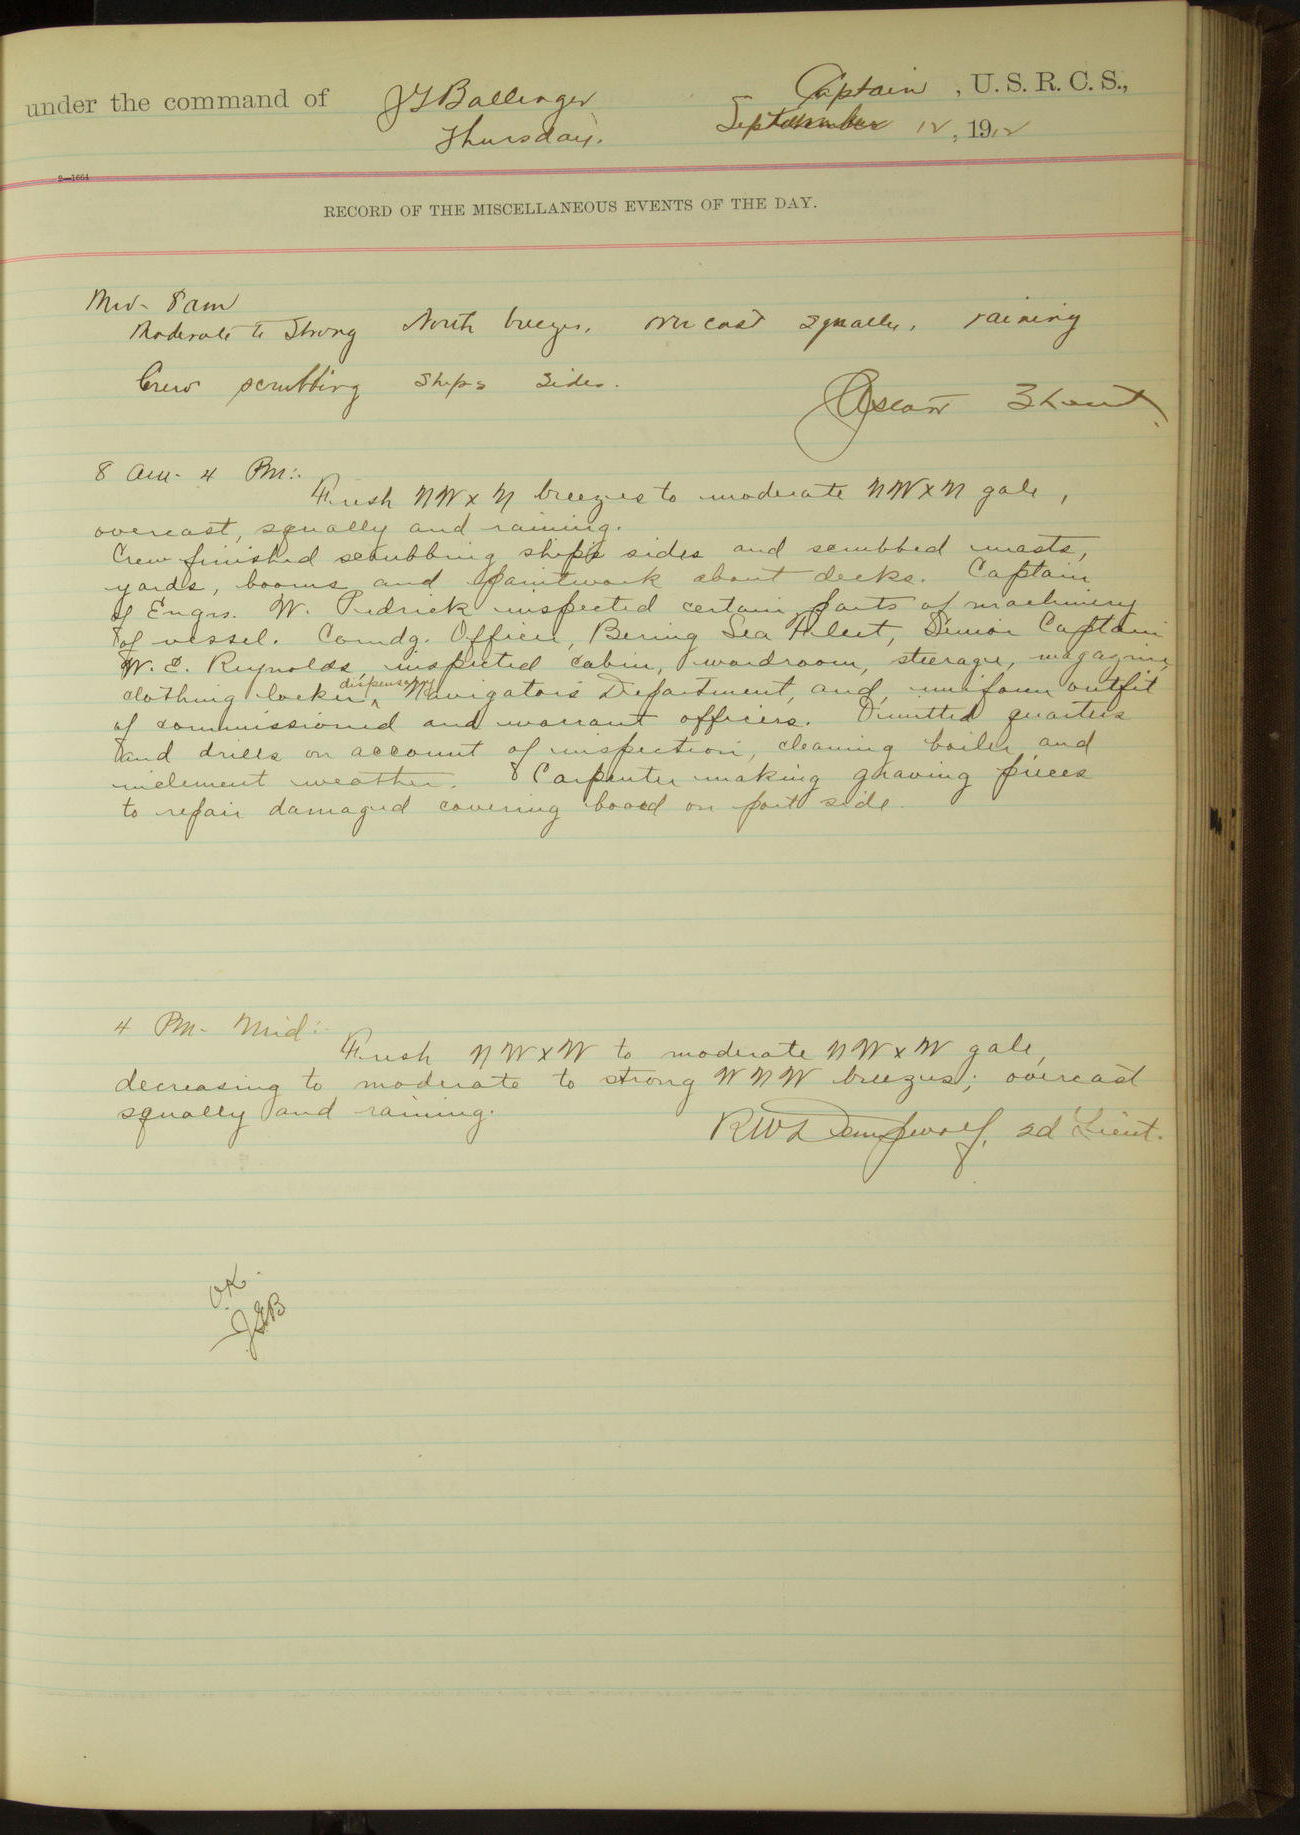 under the command of J G Ballinger Captain, U. S. R. C. S.,
Thursday. September 12, 1912
2—1664
RECORD OF THE MISCELLANEOUS EVENTS OF THE DAY.
Mid- 8 am
Moderate to Strong North breezes, overcast squally, raining
Crew scrubbing ships sides.
3 Lieut
8 Am- 4 Pm:-
Fresh NWxN breezes to moderate NWxN gale,
overcast, squally and raining.
Crew finished scrubbing ship's sides and scrubbed masts,
yards, booms and paintwork about decks. Captain
of Engrs. W. Pedrick inspected certain parts of machinery
of vessel. Comdg. Officer, Bering Sea Fleet, Senior Captain
W. E. Reynolds, inspected cabin, wardroom, steerage, magazine,
clothing locker, dispensary, Navigator's Department, and, uniform outfit
of commissioned and warrant officers. Omitted quarters
and drills on account of inspection, cleaning boiler and
inclement weather. Carpenter making graving pieces
to repair damaged covering board on port side
4 Pm- Mid:-
Fresh NWxW to moderate NWxW gale,
decreasing to moderate to strong WNW breezes; overcast
squally and raining.
R W Dempwolf, 2d Lieut.
O.K.
JGB